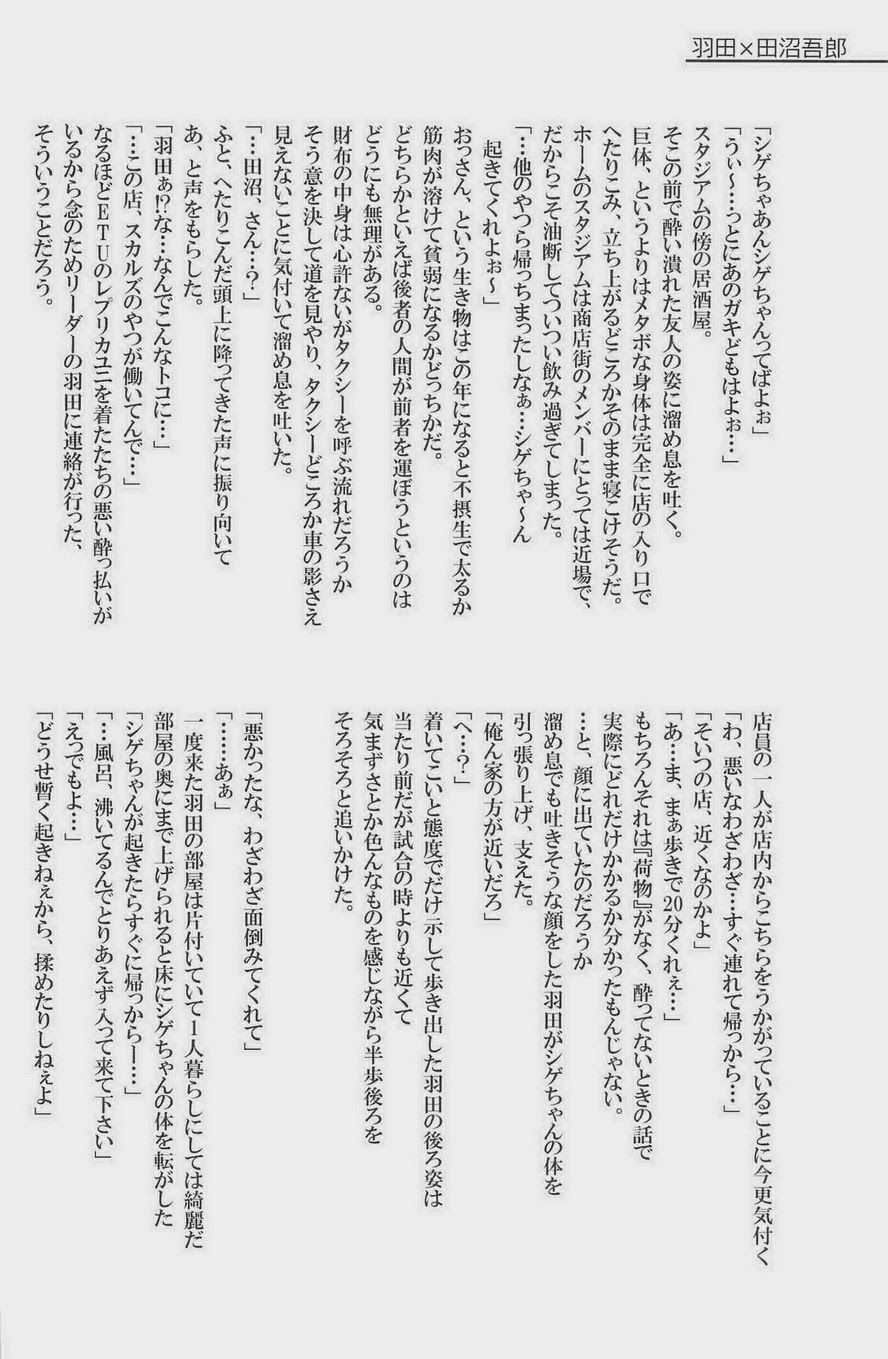 羽田×田沼吾郎
「シゲちゃあんシゲちゃんってばよぉ」
「うぃ～…っとにあのガキどもはよぉ…」
スタジアムの傍の居酒屋。
そこの前で酔い潰れた友人の姿に溜め息を吐く。
巨体、というよりはメタボな身体は完全に店の入り口で
へたりこみ、立ち上がるどころかそのまま寝こけそうだ。
ホームのスタジアムは商店街のメンバーにとっては近場で、
だからこそ油断してついつい飲み過ぎてしまった。
「…他のやつら帰っちまったしなぁ…シゲちゃ～ん
起きてくれよぉ～」
おっさん、という生き物はこの年になると不摂生で太るか
筋肉が溶けて貧弱になるかどっちかだ。
どちらかといえば後者の人間が前者を運ぼうというのは
どうにも無理がある。
財布の中身は心許ないがタクシーを呼ぶ流れだろうか
そう意を決して道を見やり、タクシーどころか車の影さえ
見えないことに気付いて溜め息を吐いた。
「…田沼、さん…？」
ふと、へたりこんだ頭上に降ってきた声に振り向いて
あ、と声をもらした。
「羽田ぁ!?な…なんでこんなトコに…」
「…この店、スカルズのやつが働いてんで…」
なるほどＥＴＵのレプリカユニを着たたちの悪い酔っ払いが
いるから念のためリーダーの羽田に連絡が行った、
そういうことだろう。
店員の一人が店内からこちらをうかがっていることに今更気付く
「わ、悪いなわざわざ…すぐ連れて帰っから…」
「そいつの店、近くなのかよ」
「あ…ま、まぁ歩きで20分くれぇ…」
もちろんそれは『荷物』がなく、酔ってないときの話で
実際にどれだけかかるか分かったもんじゃない。
…と、顔に出ていたのだろうか
溜め息でも吐きそうな顔をした羽田がシゲちゃんの体を
引っ張り上げ、支えた。
「俺ん家の方が近いだろ」
「へ…？」
着いてこいと態度でだけ示して歩き出した羽田の後ろ姿は
当たり前だが試合の時よりも近くて
気まずさとか色んなものを感じながら半歩後ろを
そろそろと追いかけた。
「悪かったな、わざわざ面倒みてくれて」
「……あぁ」
一度来た羽田の部屋は片付いていて１人暮らしにしては綺麗だ
部屋の奥にまで上げられると床にシゲちゃんの体を転がした
「シゲちゃんが起きたらすぐに帰っからー…」
「…風呂、沸いてるんでとりあえず入って来て下さい」
「えっでもよ…」
「どうせ暫く起きねぇから、揉めたりしねぇよ」